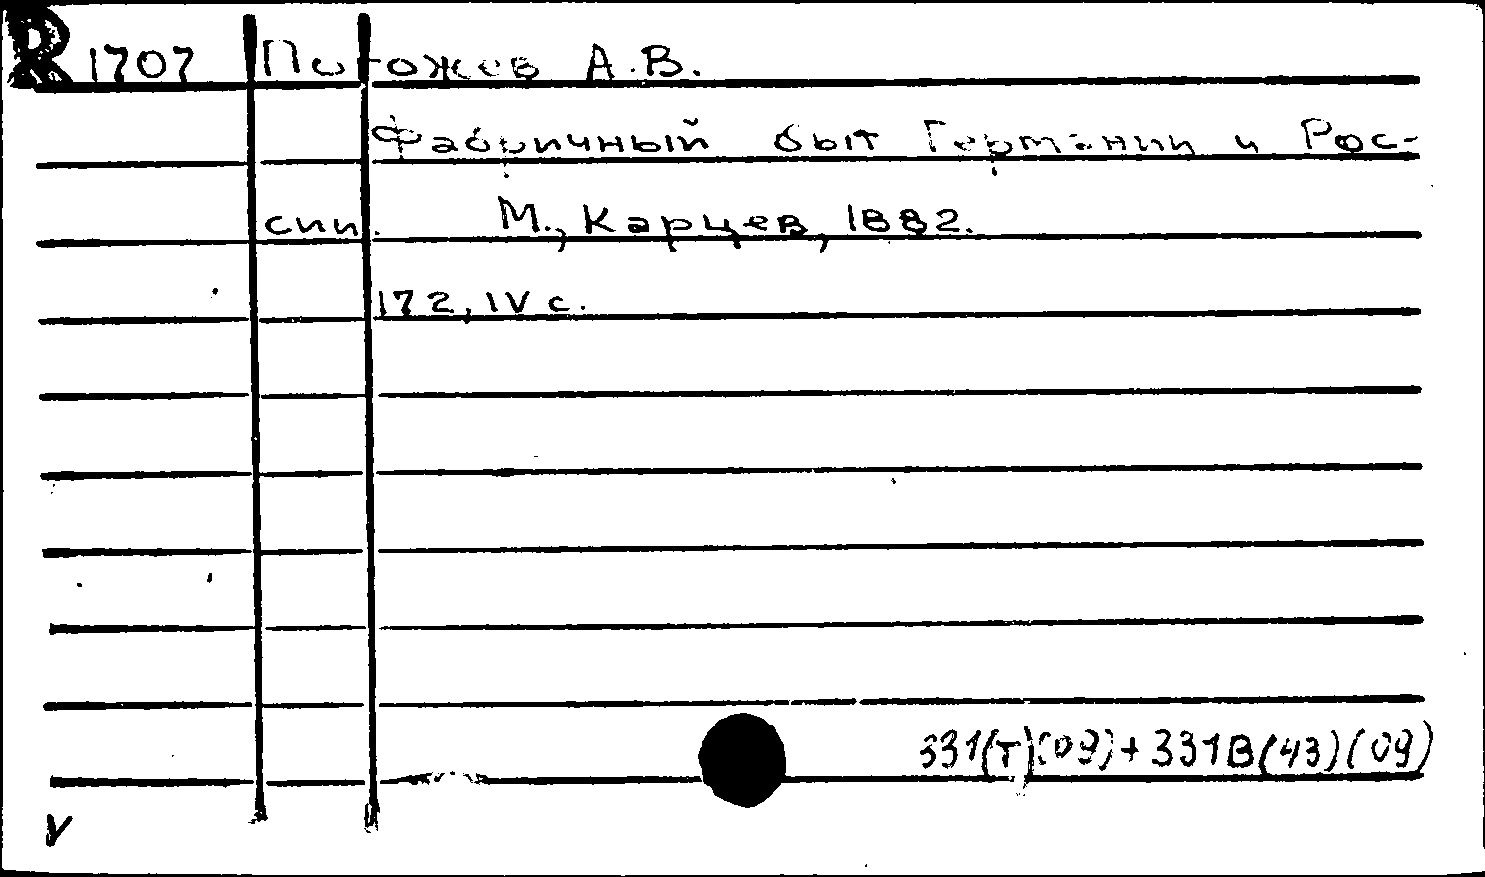 R 1707 Погожев А.В.
Фабричный быт Германии и Рос-
сии. М., Карцев, 1882.
172, IV с.
331(Т)(09)+331В(43)(09)
V